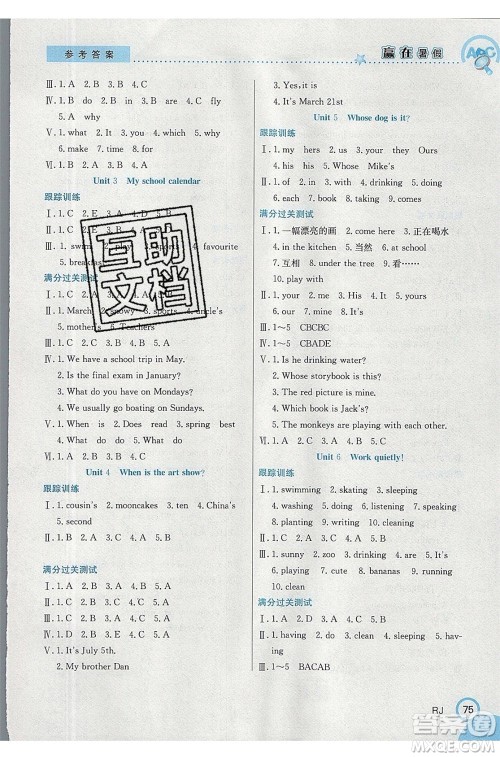 参考答案
赢在暑假
ABC
Ⅲ. 1. A 2. B 3. C 4. C 5. A
Ⅳ. 1. Why 2. Because 3. snowman
4. play 5. why
Ⅴ. 1. what 2. swimming 3. vacation 5. cook
6. make 7. time 8. because
Ⅵ. 1. C 2. A 3. C 4. B 5. A
Unit 3 My school calendar
跟踪训练
Ⅰ. 1. C 2. E 3. A
Ⅱ. 1. C 2. D 3. A
Ⅲ. 1. sports 4. favourite
5. breakfast
满分过关测试
Ⅰ. 1. C 2. A
Ⅱ. 1. March 2. snowy 3. sports 4. uncle's
5. mother's 6. Teachers'
Ⅳ. 1. We have a school trip in May.
2. Is the final exam in January?
3. What do you have on Mondays?
4. We usually go boating on Sundays.
Ⅴ. 1. When is 2. Does read 3. sports meet
4. What do
Ⅵ. 1. A 2. B 3. C 4. B 5. A
Unit 4 When is the art show?
跟踪训练
Ⅰ. 1. cousin's 2. mooncakes 3. trip 4. China's
5. second
Ⅱ. 1. C 2. D 3. A 4. B 5. A
满分过关测试
Ⅰ. 1. A 2. C 3. B 4. B 5. A
Ⅱ. 1. B 2. C 3. A 4. C 5. A
Ⅲ. 1. C 2. B 3. B 4. A 5. B
Ⅳ. 1. C 2. D 3. E 4. B 5. A
Ⅴ. 1. It's July 5th.
2. My brother Dan
3. Yes, it is
4. It's March 21st
Unit 5 Whose dog is it?
跟踪训练
Ⅰ. 1. my hers 2. us your 3. they Ours
4. his his 5. Whose Mike's
Ⅱ. 1. climbing 2. using 3. playing 4. doing
5. each 6. book 7. taking 8. eating
满分过关测试
Ⅰ. 1. 一幅漂亮的画 2. come here 3. 正在喝水
4. in the kitchen 5. 当然 6. at school
7. 互相 8. under the tree 9. 看……
10. play with
Ⅱ. 1. your 2. me 3. your 4. its
Ⅲ. 1～5 CBCBC
Ⅳ. 1～5 CBADE
Ⅴ. 1. Is he drinking water?
2. Whose storybook is this?
3. The red picture is mine.
4. Which book is Jack's?
5. The monkeys are playing with books.
Ⅵ. 1. C 2. B 3. A 4. C 5. B
Unit 6 Work quietly!
跟踪训练
Ⅰ. 1. swimming 2. skating 3. sleeping
4. washing 5. drinking 6. using
Ⅱ. 1. C 2. B 3. A 4. B 5. C
Ⅲ. 1. sunny 2. zoo 3. drinking 4. doing
5. sleeping 6. use 7. bananas 8. sunny
9. running 10. clean
满分过关测试
Ⅰ. 1. A 2. B 3. C 4. B 5. B
Ⅱ. 1. having 2. do 3. climbing 4. see 5. having
Ⅲ. 1～5 BACAB
RJ 75
互助文档
答案圈
MXQE.COM